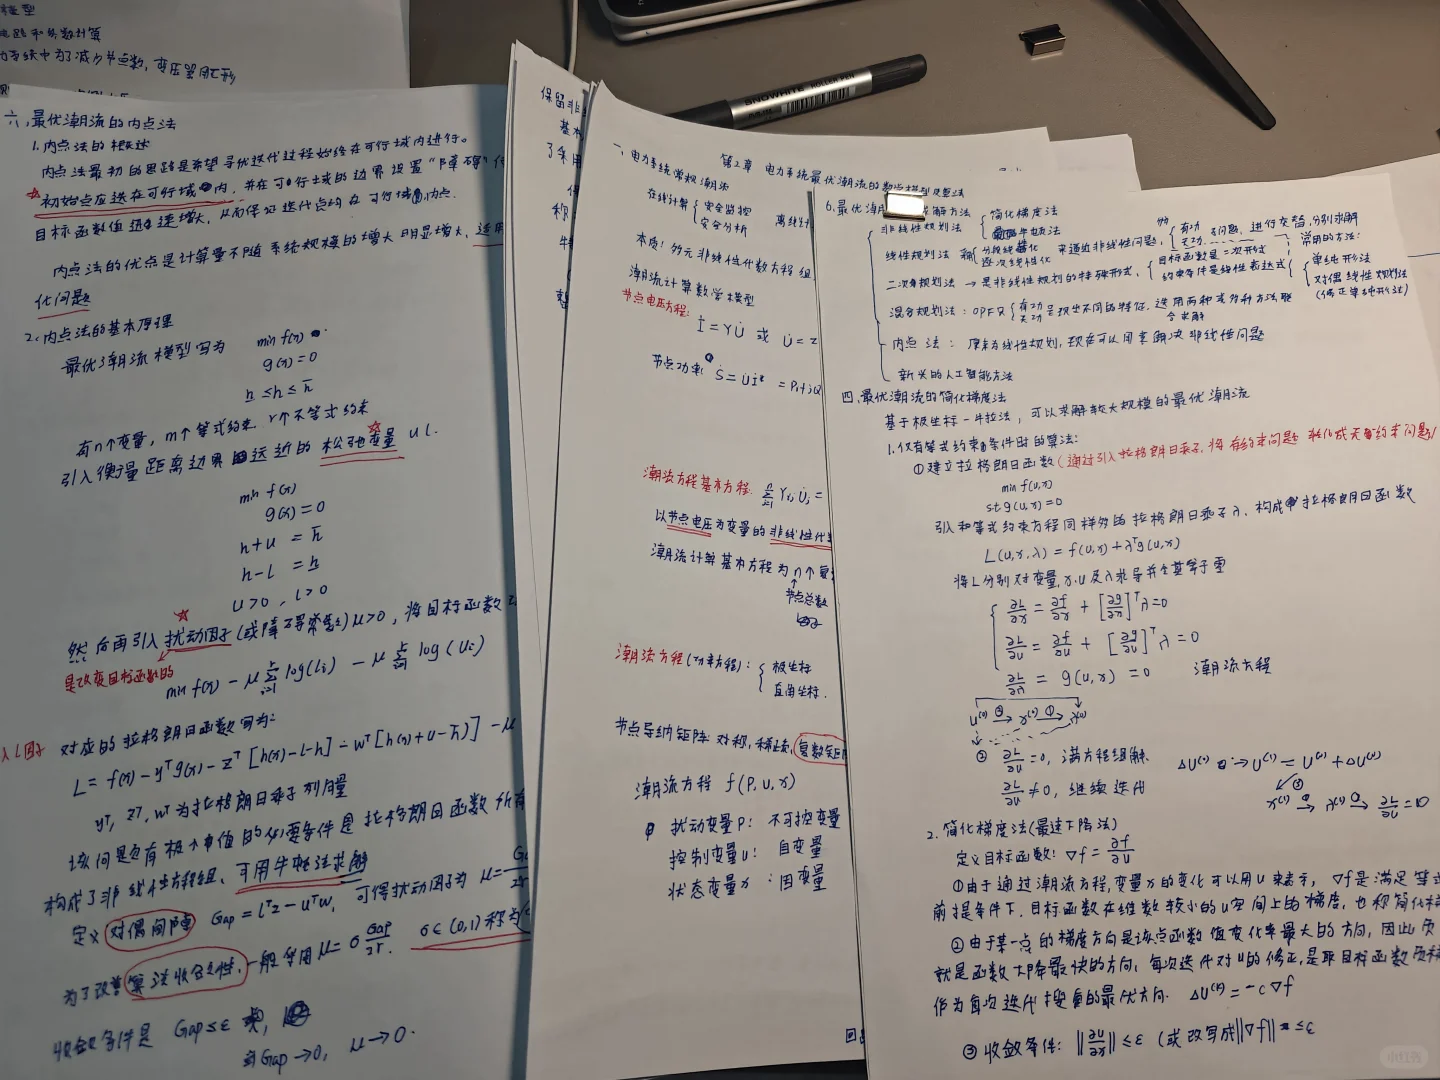 模型
电路和参数计算
力系统中为了减少节点数，变压器用π形
六、最优潮流的内点法
1.内点法的概述
内点法最初的思路是希望寻优迭代过程始终在可行域内进行。
初始点应选在可行域内，并在可行域的边界设置“障碍”
目标函数值迅速增大，从而保证迭代点均在可行域内点.
内点法的优点是计算量不随系统规模的增大明显增大，适用
化问题
2.内点法的基本原理
最优潮流模型写为 min f(x)
g(x)=0
h≤h≤h̅
有n个变量，m个等式约束. r个不等式约束
引入衡量距离边界远近的松弛变量 u l.
min f(x)
g(x)=0
h+u = h̅
h-l = h
u>0 , l>0
然后再引入扰动因子(或障碍常数)μ>0，将目标函数
是改变目标函数的
min f(x) - μ∑log(li) - μ∑log(ui)
i=1
对应的拉格朗日函数写为:
L = f(x)-yᵀg(x)-zᵀ[h(x)-l-h]-wᵀ[h(x)+u-h̅)]-μ
yᵀ, zᵀ, wᵀ为拉格朗日乘子列向量
该问题有极小值的必要条件是拉格朗日函数所有
构成了非线性方程组，可用牛顿法求解
定义对偶间隙 Gap=lᵀz-uᵀw, 可得扰动因子为 μ=
为了改善算法收敛性，一般采用μ=σ Gap/2r. σ∈(0,1)称为
收敛条件是 Gap≤ε
当Gap→0, μ→0.
保留非
基本
了采用
称
第2章 电力系统最优潮流的数学模型及算法
一、电力系统常规潮流
在线计算 { 安全监控
安全分析
离线计
本质: 多元非线性代数方程组
潮流计算数学模型
节点电压方程:
İ=YU̇ 或 U̇=Z
节点功率: Ṡ=U̇İ* =P+jQ
潮流方程基本方程: ∑YijU̇j=
以节点电压为变量的非线性代数
潮流计算基本方程为n个复
节点总数
潮流方程(功率方程): { 极坐标
直角坐标
节点导纳矩阵: 对称，稀疏，复数矩阵
潮流方程 f(P,u,x)
扰动变量P: 不可控变量
控制变量u: 自变量
状态变量x: 因变量
6.最优潮 解方法
非线性规划法 { 简化梯度法
牛顿法
线性规划法 用 分段线性化
逐次线性化 来逼近非线性问题, { 有功
无功 子问题，进行交替，分别求解
二次规划法→是非线性规划的特殊形式，{ 目标函数是二次形式
约束条件是线性表达式
常用的方法:
{ 单纯形法
对偶线性规划法
(修正单纯形法)
混合规划法: OPF又{ 有功
无功 呈现出不同的特征. 选用两种或多种方法联
合求解
内点法: 原来为线性规划，现在可以用来解决非线性问题
新兴的人工智能方法
四、最优潮流的简化梯度法
基于极坐标-牛拉法，可以求解较大规模的最优潮流
1.仅有等式约束条件时的算法:
①建立拉格朗日函数(通过引入拉格朗日乘子，将有约束问题转化成无约束问题)
min f(u,x)
st g(u,x)=0
引入和等式约束方程同样多的拉格朗日乘子λ, 构成拉格朗日函数
L(u,x,λ)=f(u,x)+λᵀg(u,x)
将L分别对变量,x.u及λ求导并令其等于零
{ ∂L/∂x = ∂f/∂x + [∂g/∂x]ᵀλ=0
∂L/∂u = ∂f/∂u + [∂g/∂u]ᵀλ=0
∂L/∂λ = g(u,x) =0 潮流方程
② ∂L/∂u=0, 满方程组解. ΔU⁽⁰⁾→U⁽¹⁾=U⁽⁰⁾+ΔU⁽⁰⁾
∂L/∂u≠0, 继续迭代
x⁽¹⁾→λ⁽¹⁾→∂L/∂u=0
2. 简化梯度法(最速下降法)
定义目标函数: ∇f=∂f/∂u
①由于通过潮流方程,变量x的变化可以用u来表示，∇f是满足等式
前提条件下，目标函数在维数较小的u空间上的梯度，也称简化梯
②由于某一点的梯度方向是该点函数值变化率最大的方向，因此负
就是函数下降最快的方向，每次迭代对u的修正,是取目标函数负梯
作为每次迭代搜索的最优方向. ΔU⁽ᵏ⁾=-c∇f
③收敛条件: ‖∂u/∂x‖≤ε (或改写成‖∇f‖≤ε
SNOWHITE ROLLER PEN
小红书